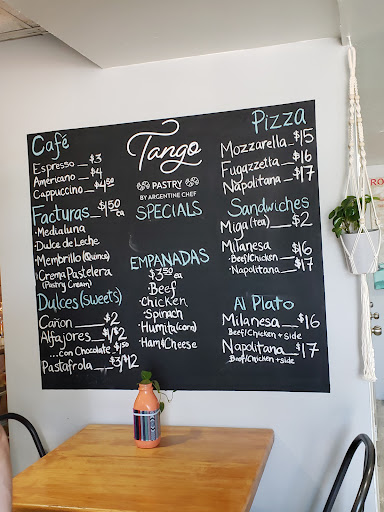 Café
Espresso $3
Americano $4
Cappuccino $4.50
Facturas $1.50 ea
•Medialuna
•Dulce de Leche
•Membrillo (Quince)
•Crema Pastelera
(Pastry Cream)
Dulces (sweets)
Cañon $2
Alfajores $1/$2
...con Chocolate $1.50
Pastafrola $3/$12
Tango
PASTRY
BY ARGENTINE CHEF
SPECIALS
EMPANADAS
$3.50 ea
Beef
•Chicken
Spinach
•Humita (corn)
•Ham & Cheese
Pizza
Mozzarella $15
Fugazzetta $16
Napolitana $17
Sandwiches
Miga (tea) $2
Milanesa $16
•Beef/Chicken
•Napolitana $17
Al Plato
Milanesa $16
Beef/Chicken + side
Napolitana $17
Beef/Chicken + side